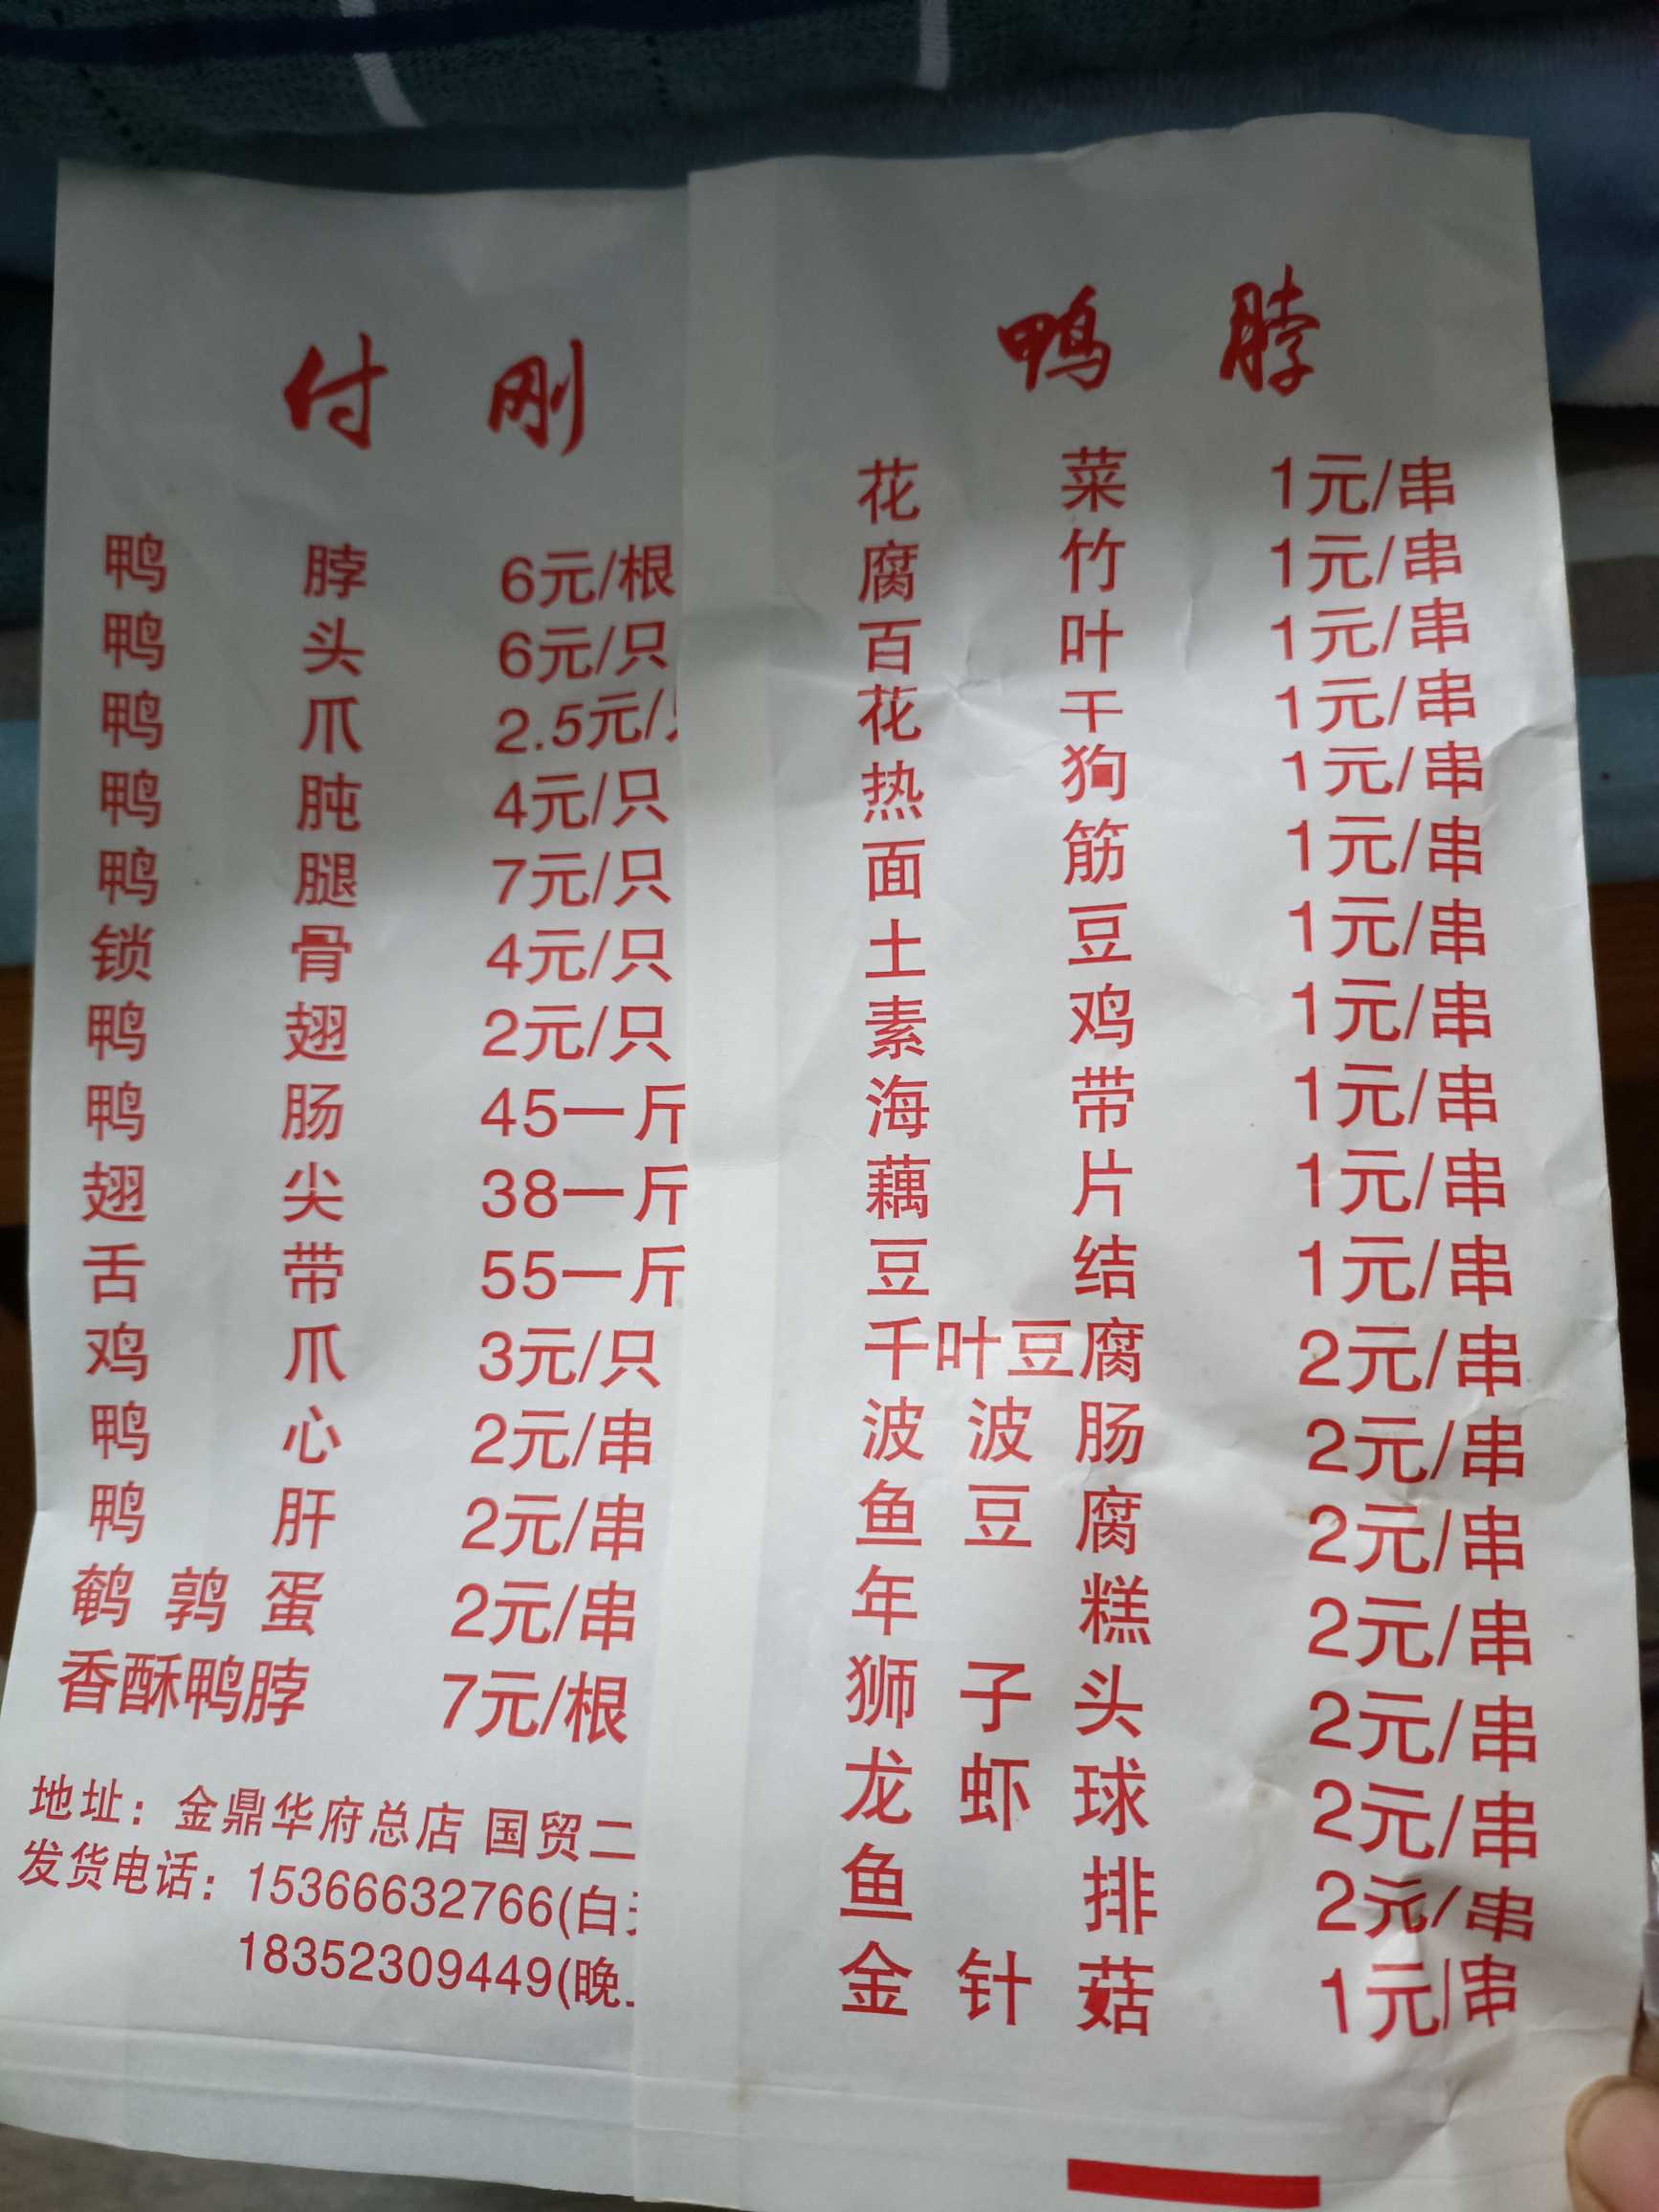 付刚
鸭脖 6元/根
鸭头 6元/只
鸭爪 2.5元/
鸭肫 4元/只
鸭腿 7元/只
锁骨 4元/只
鸭翅 2元/只
鸭肠 45一斤
翅尖 38一斤
舌带 55一斤
鸡爪 3元/只
鸭心 2元/串
鸭肝 2元/串
鹌鹑蛋 2元/串
香酥鸭脖 7元/根
地址：金鼎华府总店 国贸二
发货电话：15366632766(白
18352309449(晚
鸭脖
花菜 1元/串
腐竹 1元/串
百叶 1元/串
花干 1元/串
热狗 1元/串
面筋 1元/串
土豆 1元/串
素鸡 1元/串
海带 1元/串
藕片 1元/串
豆结 1元/串
千叶豆腐 2元/串
波波肠 2元/串
鱼豆腐 2元/串
年糕 2元/串
狮子头 2元/串
龙虾球 2元/串
鱼排 2元/串
金针菇 1元/串